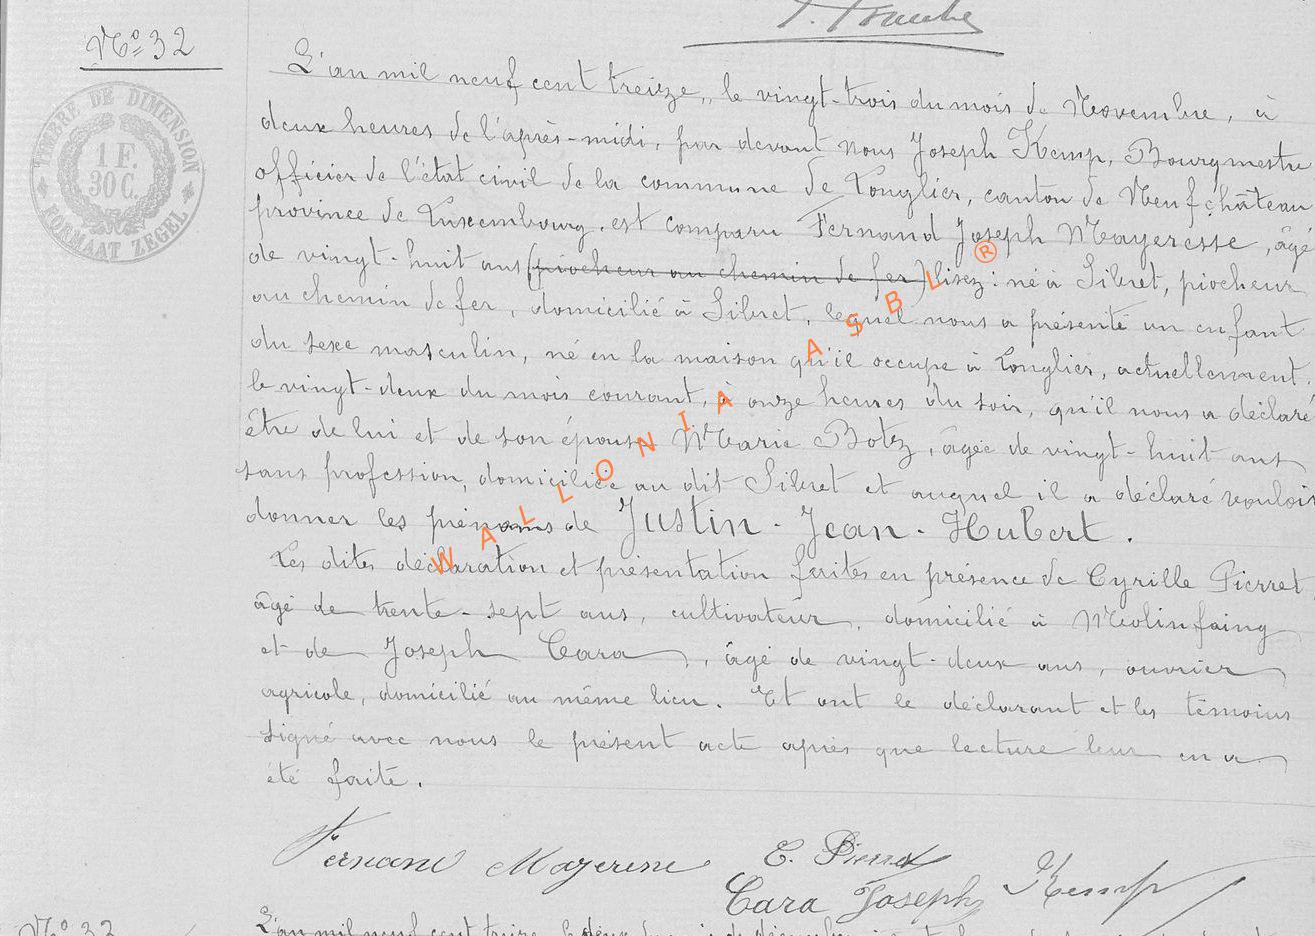 N° 32
TIMBRE DE DIMENSION
1 F.
30 C.
FORMAAT ZEGEL
L'an mil neuf cent treize, le vingt-trois du mois de Novembre, à
deux heures de l'après-midi, par devant nous Joseph Kemp, Bourgmestre
officier de l'état civil de la commune de Longlier, canton de Neufchâteau
province de Luxembourg, est comparu Fernand Joseph Mayeresse, âgé
de vingt-huit ans (piocheur au chemin de fer) lisez: né à Sibret, piocheur
au chemin de fer, domicilié à Sibret, lequel nous a présenté un enfant
du sexe masculin, né en la maison qu'il occupe à Longlier, actuellement,
le vingt-deux du mois courant, à onze heures du soir, qu'il nous a déclaré
être de lui et de son épouse Marie Botz, âgée de vingt-huit ans
sans profession, domiciliée au dit Sibret et auquel il a déclaré vouloir
donner les prénoms de Justin-Jean-Hubert.
Les dites déclaration et présentation faites en présence de Cyrille Pierret
âgé de trente-sept ans, cultivateur, domicilié à Molinfaing
et de Joseph Cara, âgé de vingt-deux ans, ouvrier
agricole, domicilié au même lieu. Et ont le déclarant et les témoins
signé avec nous le présent acte après que lecture leur en a
été faite.
Fernand Mayeresse C. Pierret
Cara Joseph Kemp
WALLONIA ASBL ®
L'an mil neuf cent treize, le